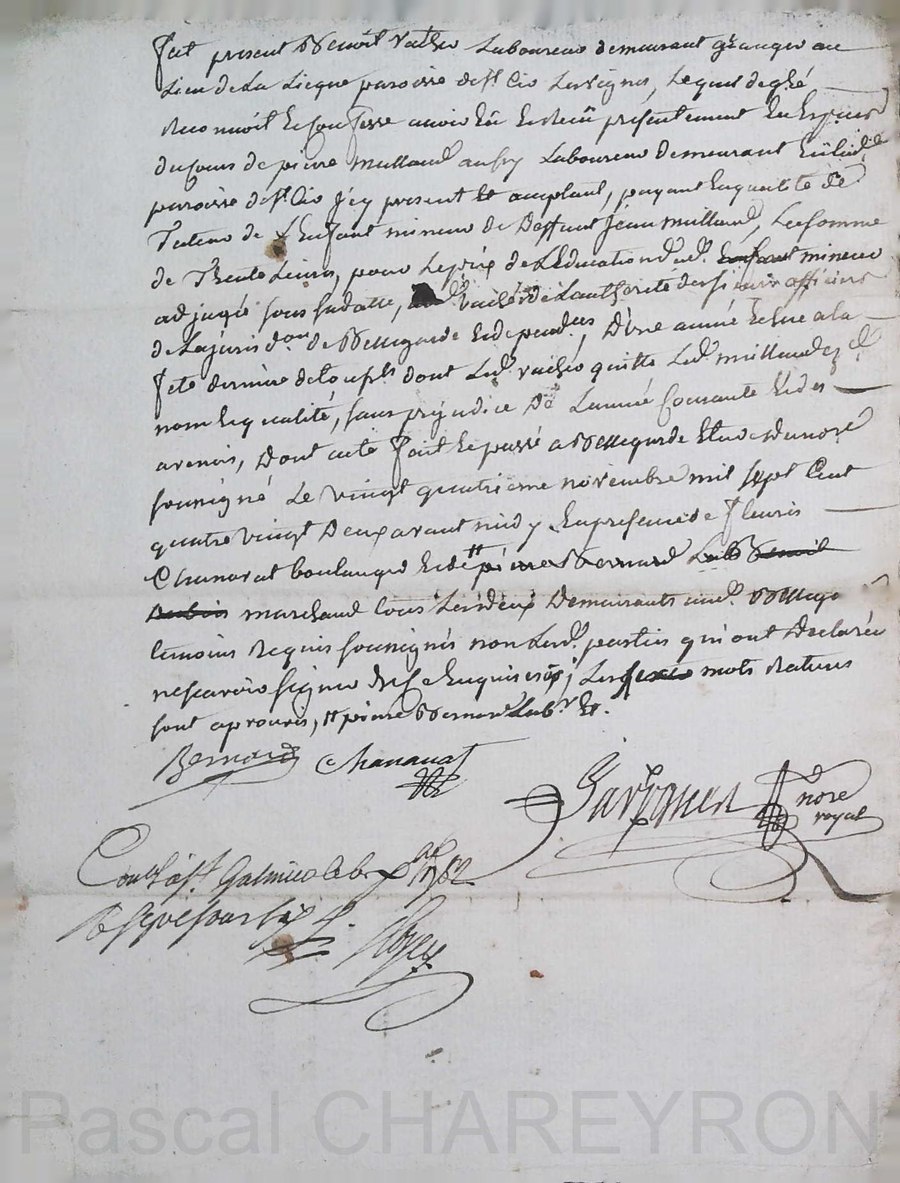 fut present Benoit Vachio Laboureur demeurant granger au
Lieu de La Lieque paroisse de st Cio Lesvignes, Lequel de gré
Reconnoit & confesse avoir Eu & Receu présentement En Especes
du cours de pierre Milland aussy Laboureur demeurant
paroisse de st Cio jcy present & acceptant, payant En qualité de
Tuteur de L'Enfant mineur de Deffunt jean Milland, La somme
de Trente Livres, pour Le prix de L'éducation dud. Enfant mineur
adjugée sous sa datte, de L'authorité des sieurs officiers
de La jurisdon. de Bellegarde & dependces, D'une année Echue a la
fete derniere de Toussts dont Led. vachio quitte Led. Milland Ez d.
nom & qualité, sans préjudice De L'année Courante & des
avenir, Dont acte fait & passé a Bellegarde Etude du nore
soussigné Le vingt quatrieme novembre mil sept Cent
quatre vingt Deux avant midy En presence de fleuris
Chanavat boulanger & de # pierre Bernard Labr Benoit
marchand tous Les deux Demeurants aud. Bellegde
temoins Requis soussignés non Lesd. parties qui ont Declarée
ne scavoir signer De ce Enquis ; Les mots Ratures
sont aprouvés, # pierre Bernard Labr. &.
Bernard Chanavat
nore
royal
Conllé a st Galmier Le 8e xbre 1782
Reçu
Pascal CHAREYRON